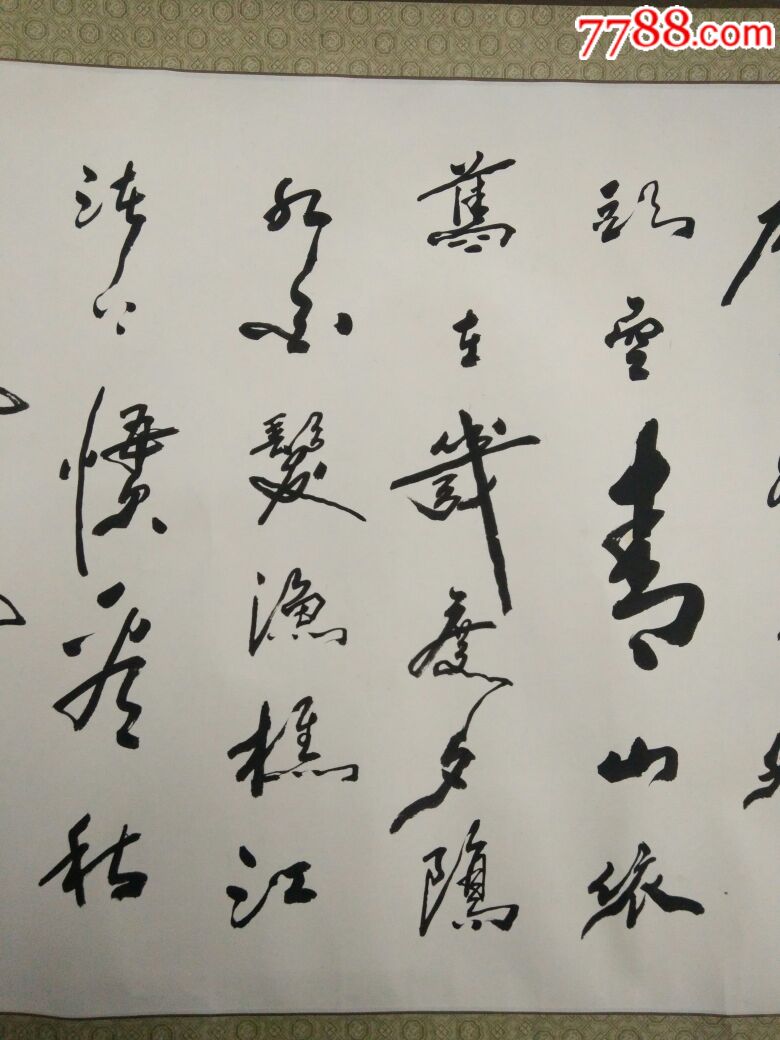 7788.com
頭空青山依
舊在幾度夕陽
紅白髮漁樵江
渚上慣看秋